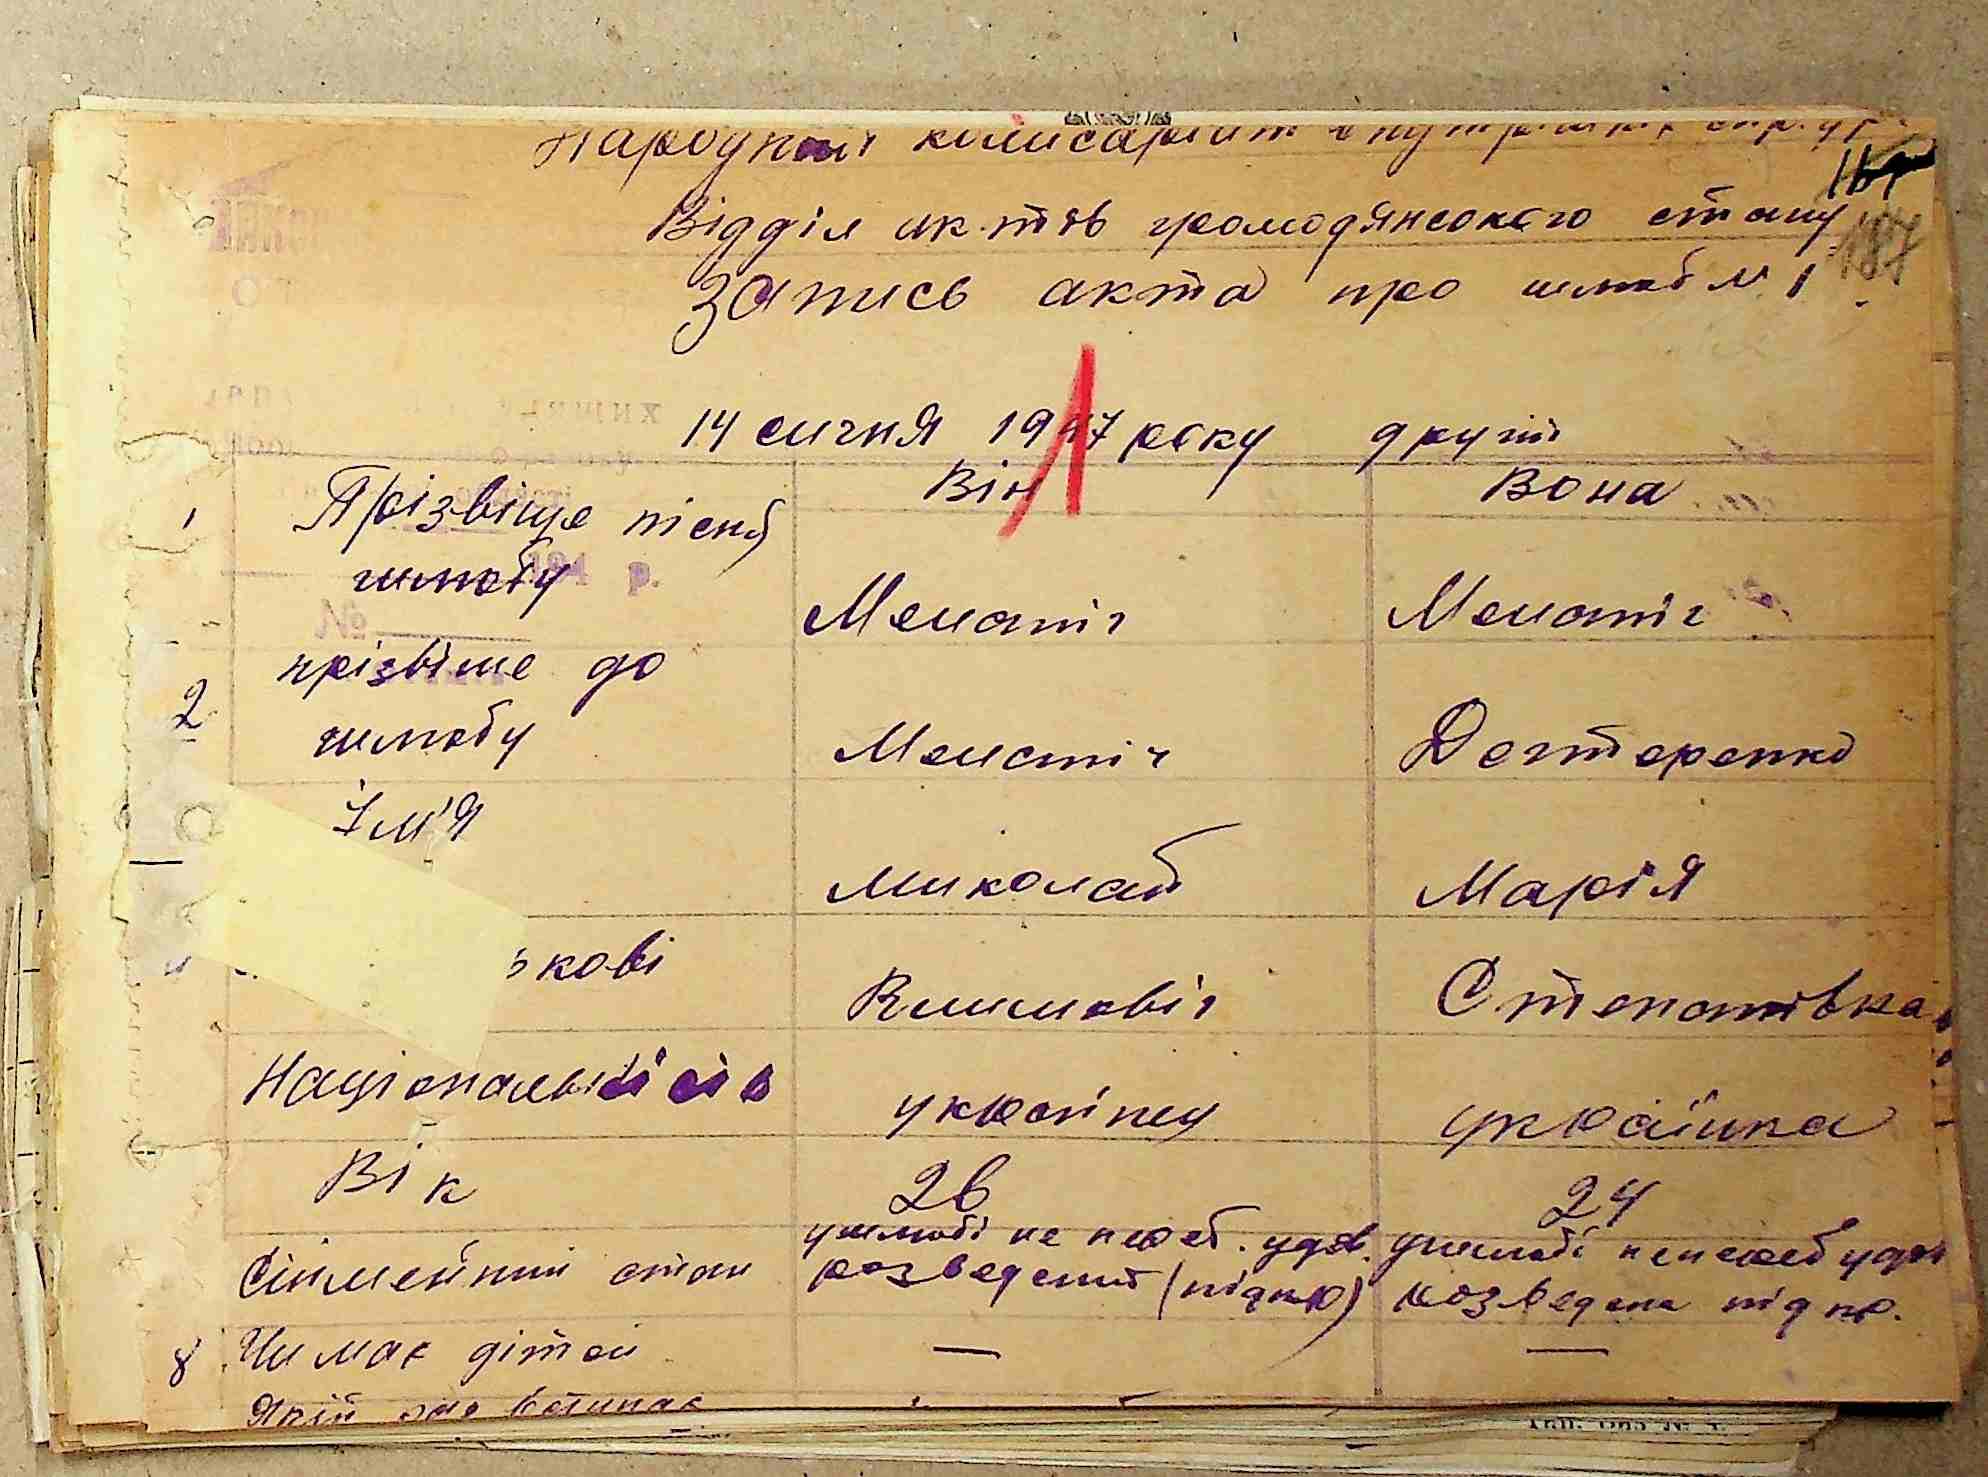 Народний комісаріат внутрішніх справ
167
Відділ актів громодянського стану
187
Запись акта про шлюб № 1
14 сичня 1947 року другий
Він Вона
1 Прізвіще після
шлюбу Менатіч Менатіч
2 прізвіще до
шлюбу Менатіч Дехтеренко
Ім'я
Миколай Марія
ькові Климовіч Степанівна
Національність українец українка
Вік 26 24
Сімейний стан у шлюбі не переб. удов. у шлюбі не переб удов
розведений (підкр) розведена підкр.
8 Чи має дітей — —
Який раз вступає